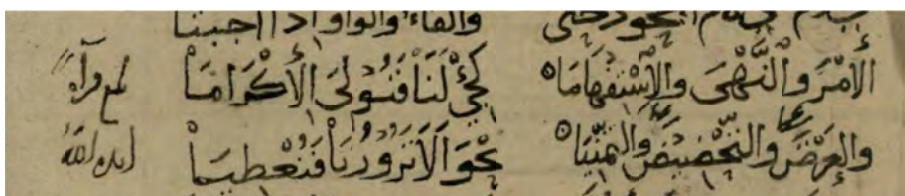 الجحود حتى والفاء والواو إذا أجبنا
الأَمْرَ والنَّهْيَ والاِسْتِفْهَامَا كَجِئْ لَنَا فَنُولِيَ الأِكْرَامَا
والعَرْضَ والتَّحْضِيضَ والتَّمَنِّيَا نَحْوَ أَلَا تَزُورُنَا فَتُعْطِيَا
أيده الله